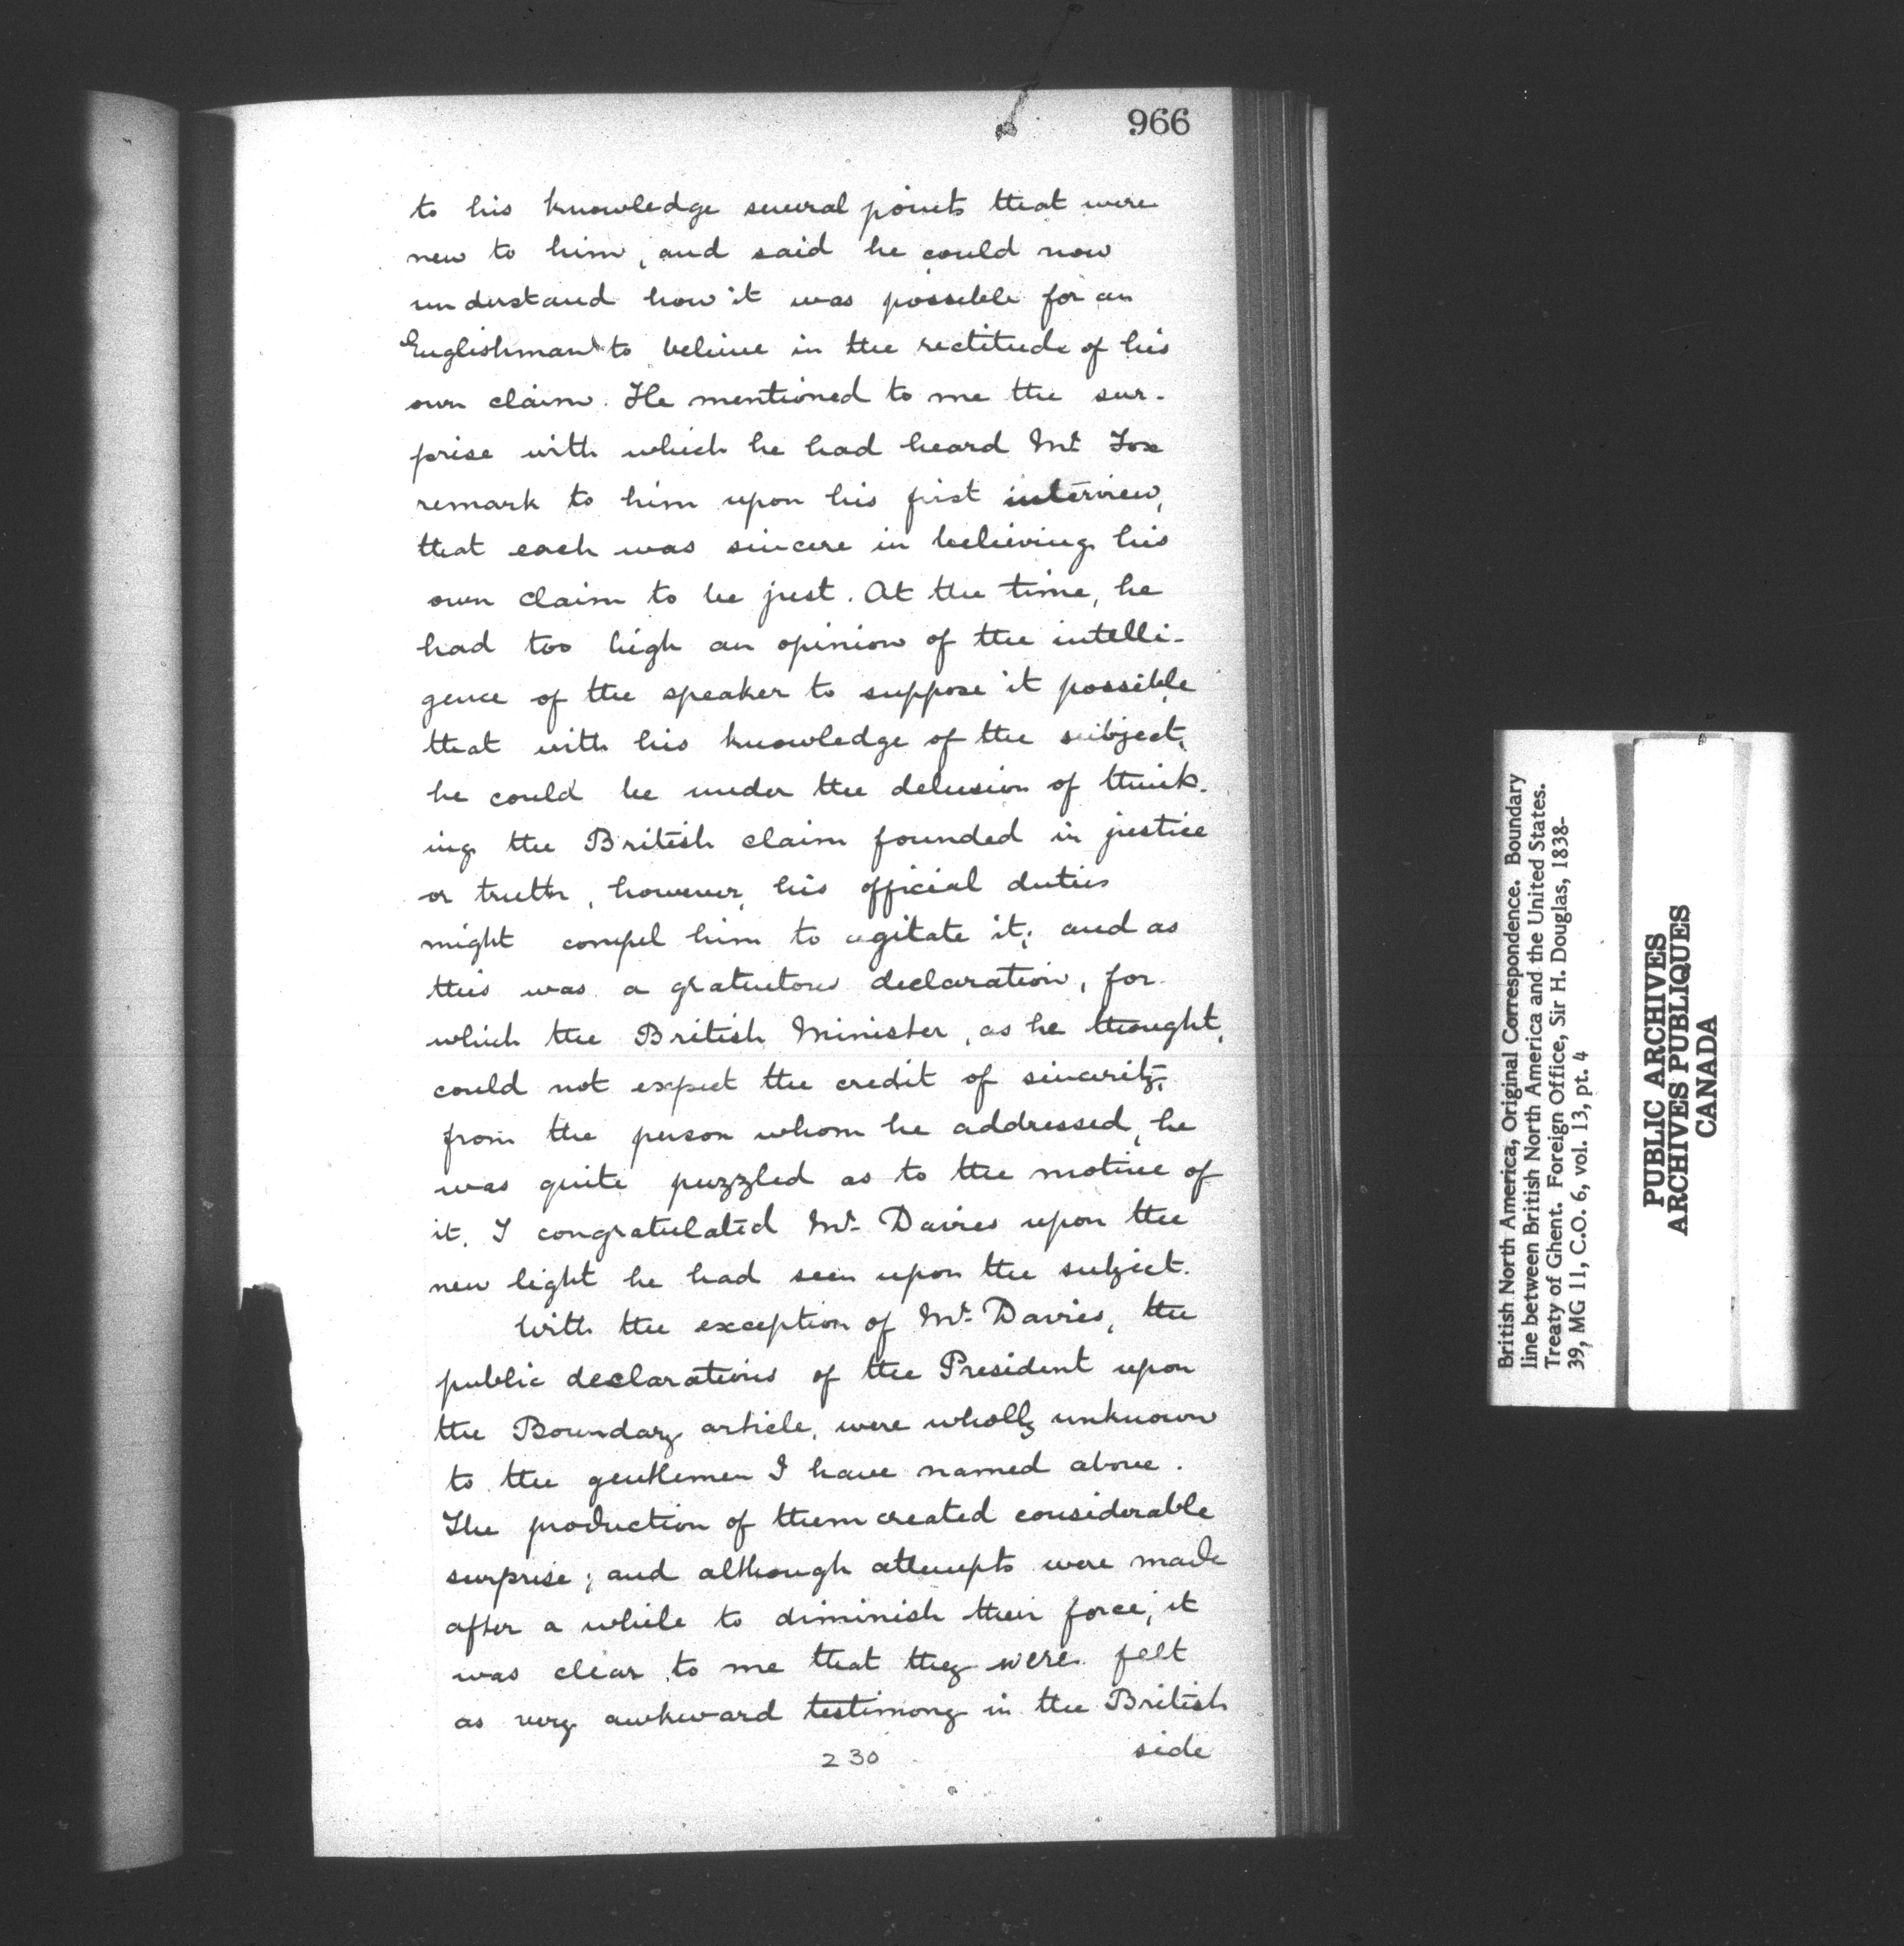 966
to his knowledge several points that were
new to him, and said he could now
understand how it was possible for an
Englishman to believe in the rectitude of his
own claim. He mentioned to me the sur-
prise with which he had heard Mr Fox
remark to him upon his first interview,
that each was sincere in believing his
own claim to be just. At the time, he
had too high an opinion of the intelli-
gence of the speaker to suppose it possible
that with his knowledge of the subject,
he could be under the delusion of think-
ing the British claim founded in justice
or truth, however, his official duties
might compel him to agitate it; and as
this was a gratuitous declaration, for
which the British Minister, as he thought,
could not expect the credit of sincerity,
from the person whom he addressed, he
was quite puzzled as to the motive of
it. I congratulated Mr Davies upon the
new light he had seen upon the subject.
With the exception of Mr Davies, the
public declarations of the President upon
the Boundary article, were wholly unknown
to the gentlemen I have named above.
The production of them created considerable
surprise; and although attempts were made
after a while to diminish their force, it
was clear to me that they were felt
as very awkward testimony in the British
side
230
British North America, Original Correspondence. Boundary
line between British North America and the United States.
Treaty of Ghent. Foreign Office, Sir H. Douglas, 1838-
39, MG 11, C.O. 6, vol. 13, pt. 4
PUBLIC ARCHIVES
ARCHIVES PUBLIQUES
CANADA